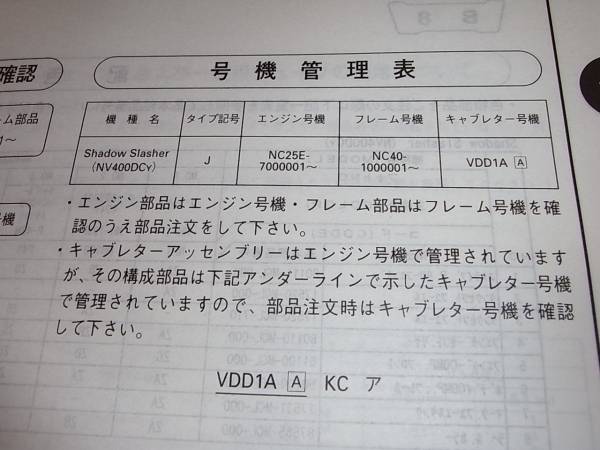 確認
号機管理表
ーム部品
1〜
号機
機種名 タイプ記号 エンジン号機 フレーム号機 キャブレター号機
Shadow Slasher J NC25E- NC40- VDD1A A
(NV400DCY) 7000001〜 1000001〜
・エンジン部品はエンジン号機・フレーム部品はフレーム号機を確
認のうえ部品注文をして下さい。
・キャブレターアッセンブリーはエンジン号機で管理されています
が、その構成部品は下記アンダーラインで示したキャブレター号機
で管理されていますので、部品注文時はキャブレター号機を確認
して下さい。
VDD1A A KC ア